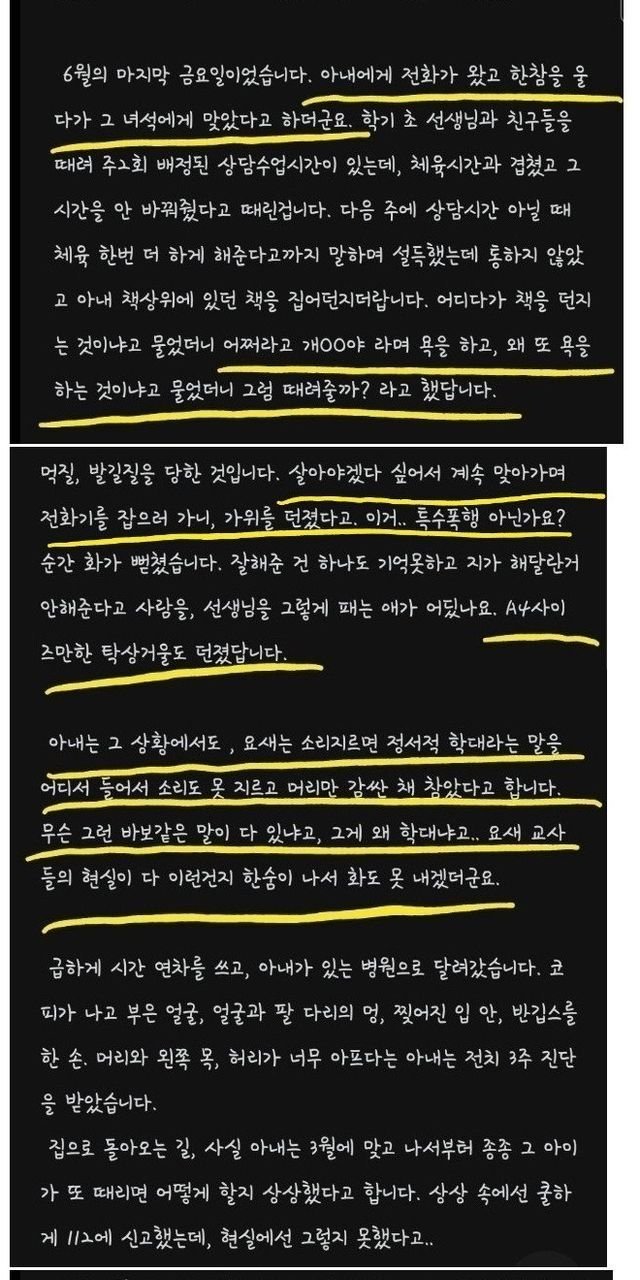 6월의 마지막 금요일이었습니다. 아내에게 전화가 왔고 한참을 울
다가 그 녀석에게 맞았다고 하더군요. 학기 초 선생님과 친구들을
때려 주2회 배정된 상담수업시간이 있는데, 체육시간과 겹쳤고 그
시간을 안 바꿔줬다고 때린겁니다. 다음 주에 상담시간 아닐 때
체육 한번 더 하게 해준다고까지 말하며 설득했는데 통하지 않았
고 아내 책상위에 있던 책을 집어던지더랍니다. 어디다가 책을 던지
는 것이냐고 물었더니 어쩌라고 개OO야 라며 욕을 하고, 왜 또 욕을
하는 것이냐고 물었더니 그럼 때려줄까? 라고 했답니다.
먹질, 발길질을 당한 것입니다. 살아야겠다 싶어서 계속 맞아가며
전화기를 잡으러 가니, 가위를 던졌다고. 이거.. 특수폭행 아닌가요?
순간 화가 뻗쳤습니다. 잘해준 건 하나도 기억못하고 지가 해달란거
안해준다고 사람을, 선생님을 그렇게 패는 애가 어딨나요. A4사이
즈만한 탁상거울도 던졌답니다.
아내는 그 상황에서도 , 요새는 소리지르면 정서적 학대라는 말을
어디서 들어서 소리도 못 지르고 머리만 감싼 채 참았다고 합니다.
무슨 그런 바보같은 말이 다 있냐고, 그게 왜 학대냐고.. 요새 교사
들의 현실이 다 이런건지 한숨이 나서 화도 못 내겠더군요.
급하게 시간 연차를 쓰고, 아내가 있는 병원으로 달려갔습니다. 코
피가 나고 부은 얼굴, 얼굴과 팔 다리의 멍, 찢어진 입 안, 반깁스를
한 손. 머리와 왼쪽 목, 허리가 너무 아프다는 아내는 전치 3주 진단
을 받았습니다.
집으로 돌아오는 길, 사실 아내는 3월에 맞고 나서부터 종종 그 아이
가 또 때리면 어떻게 할지 상상했다고 합니다. 상상 속에선 쿨하
게 112에 신고했는데, 현실에선 그렇지 못했다고..